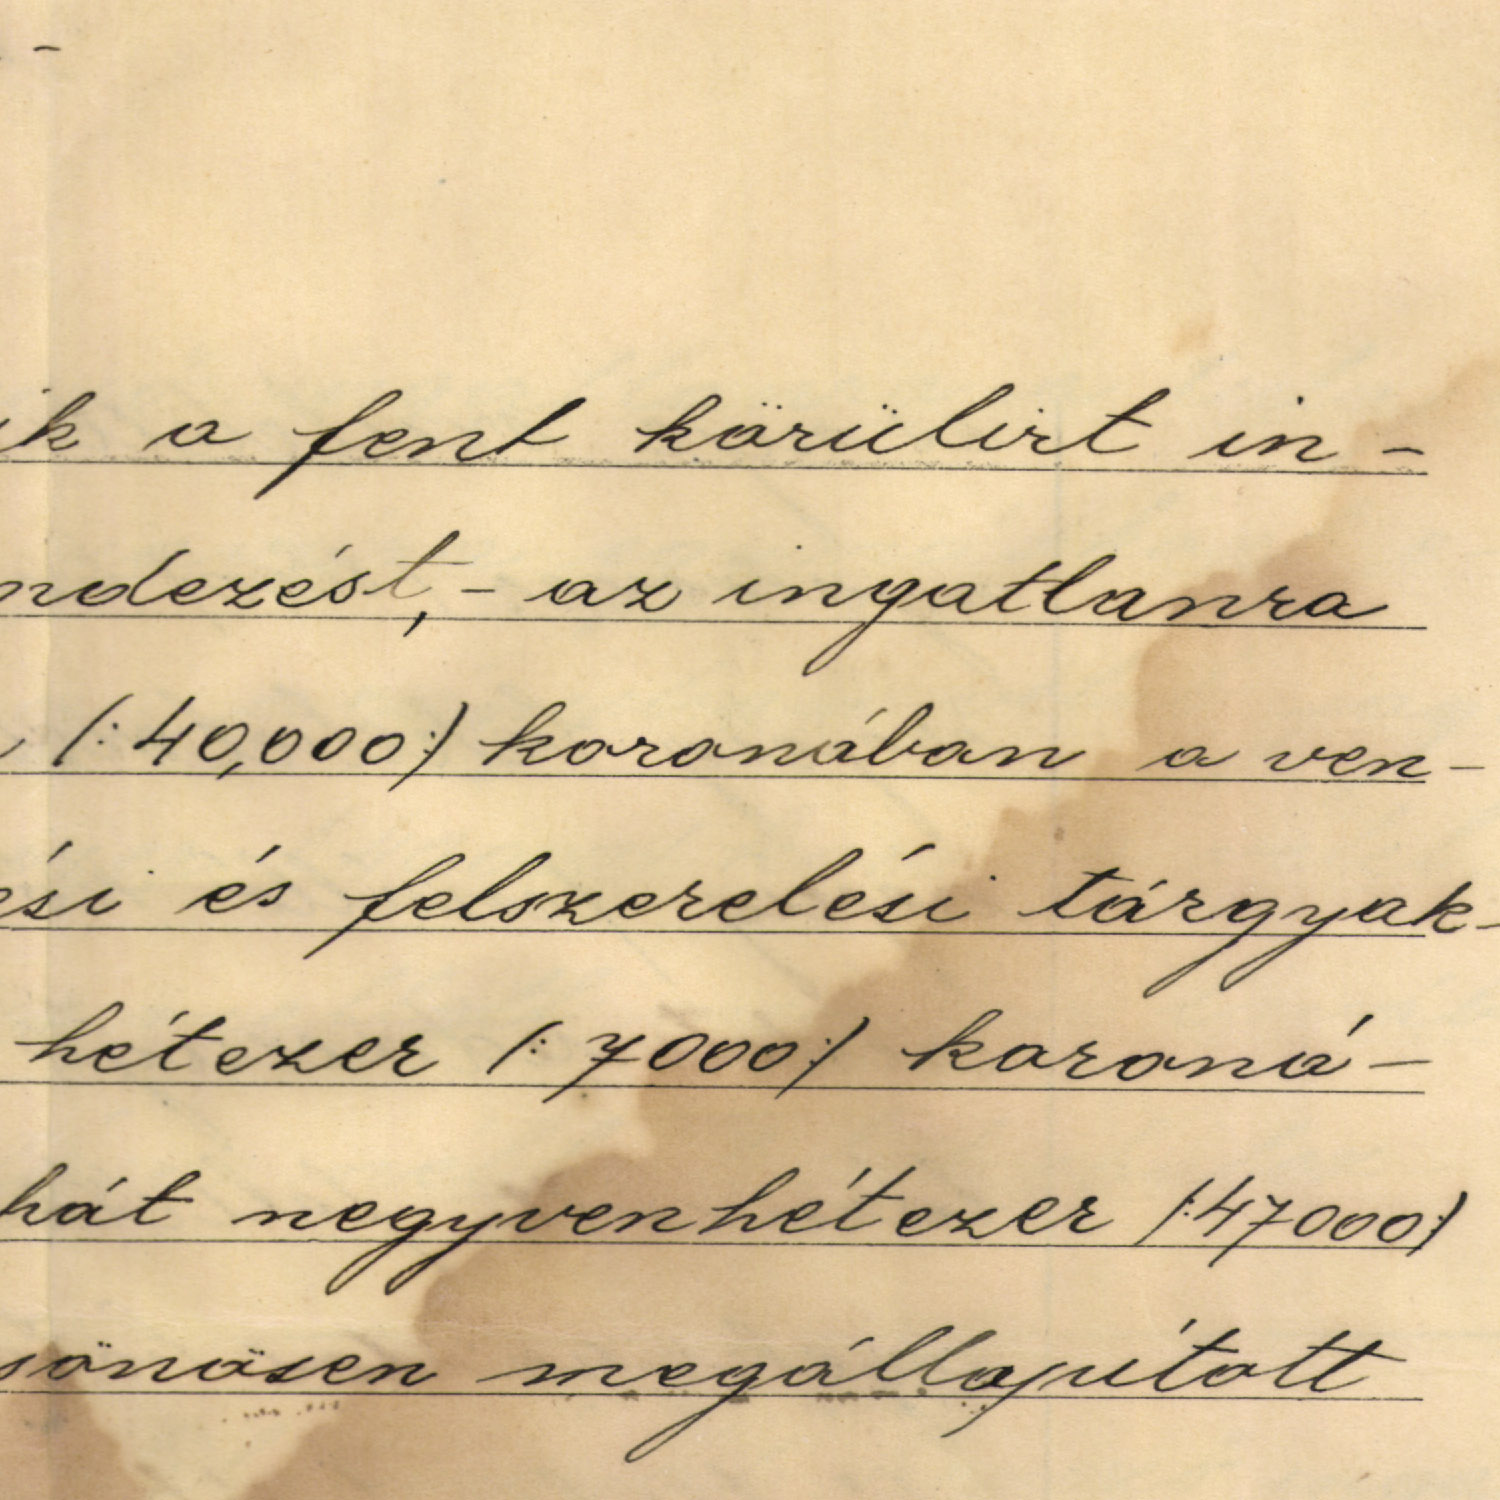 ik a fent körülirt in-
ndezést,- az ingatlanra
(:40,000:) koronában a ven-
ési és felszerelési tárgyak-
hétezer (:7000:) koroná-
hát negyvenhétezer (:47000:)
sönösen megállapitott